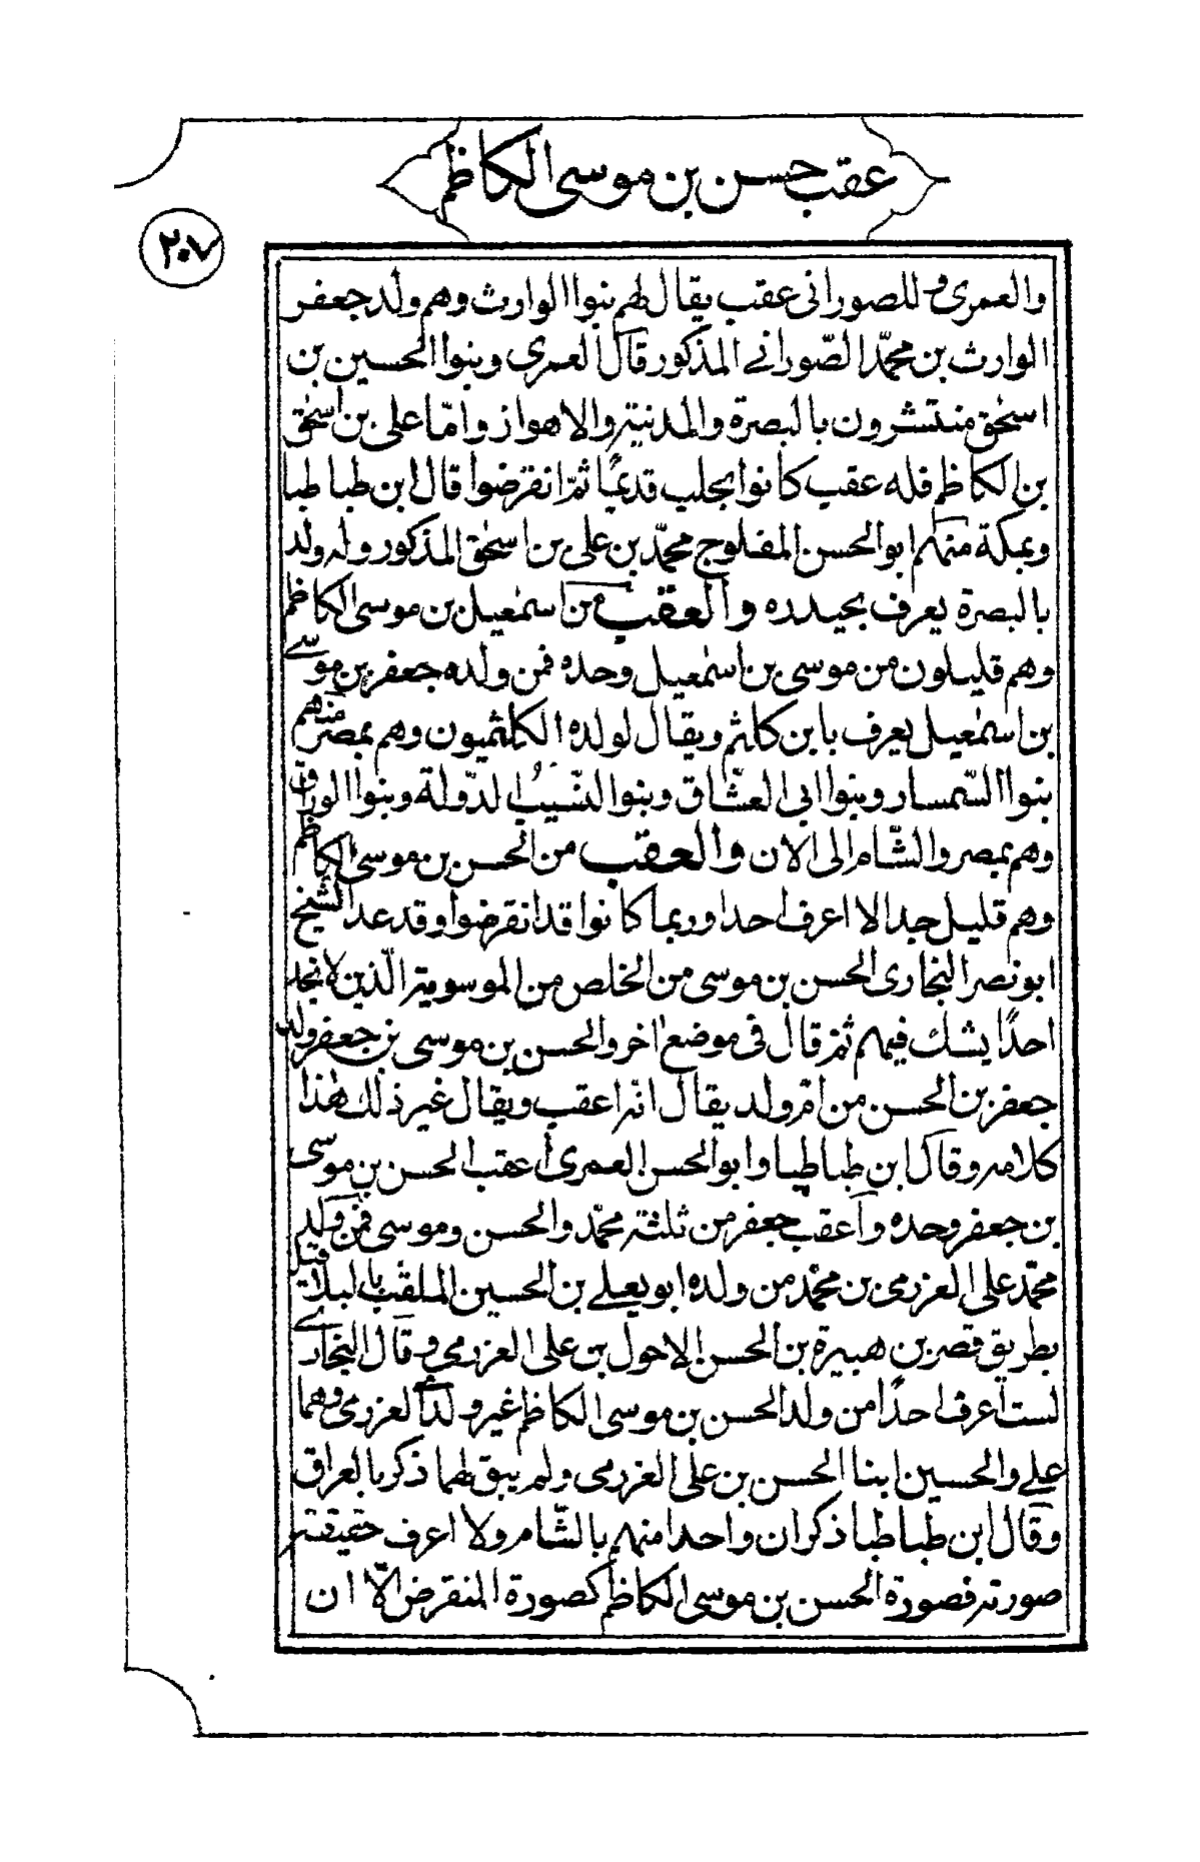 عقب حسن بن موسى الكاظم
٢٠٧
والعمرى وللصورانى عقب يقال لهم بنوا الوارث وهم ولد جعفر
الوارث بن محمّد الصّورانے المذكور قال العمرى وبنوا الحسين بن
اسحٰق منتشرون بالبصرة والمدنية والاهواز وامّا على بن اسحٰق
بن الكاظم فله عقب كانوا بحلب قديمًا ثمّ انقرضوا قال ابن طباطبا
وبمكة منهم ابو الحسن المفلوج محمّد بن على بن اسحٰق المذكور وله ولد
بالبصرة يعرف بحيدره والعقب من اسمٰعيل بن موسى الكاظم
وهم قليلون من موسى بن اسمٰعيل وحده فمن ولده جعفر بن موسے
بن اسمٰعيل يعرف بابن كلثم ويقال لولده الكلثميون وهم بمصر منهم
بنوا السّمسار وبنوا ابى العشّاق وبنوا النسّيب الدّولة وبنوا الوراق
وهم بمصر والشّام الى الان والعقب من الحسن بن موسى الكاظم
وهم قليل جدا لا اعرف احدا وربما كانوا قد انقرضوا وقد عد الشّيخ
ابو نصر النجارى الحسن بن موسى من الخلص من الموسوية الّذين لا نجد
احدًا يشك فيهم ثمّ قال فى موضع اخر والحسن بن موسى بن جعفر ولد
جعفر بن الحسن من امّ ولد يقال انّه اعقب ويقال غير ذلك هٰذا
كلامه وقال ابن طباطبا وابو الحسن العمرى اعقب الحسن بن موسى
بن جعفر وحده وأعقب جعفر من ثلثة محمّد والحسن وموسى فمن ولد
محمّد على العزرمى بن محمّد من ولده ابو يعلے بن الحسين الملقّب بالبلا قتيل
بطريق قصر بن هبيرة بن الحسن الاحول بن على العزرمى وقال النجّارے
لست أعرف احدًا من ولد الحسن بن موسى الكاظم غير ولدے العزرمى وهما
علے والحسين ابنا الحسن بن على العزرمى ولم يبق لهما ذكر بالعراق
وقال ابن طباطبا ذكر ان واحدا منهم بالشّام ولا اعرف حقيقته
صورته فصورة الحسن بن موسى الكاظم كصورة المنقرض الّا ان